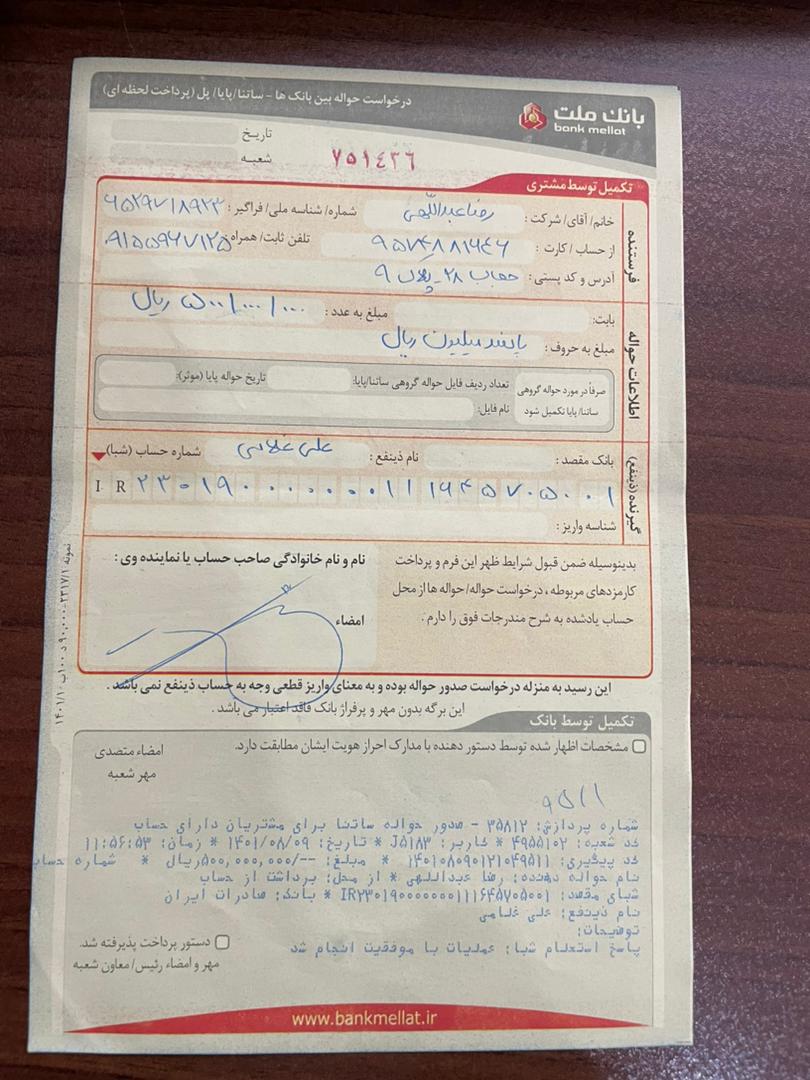 درخواست حواله بین بانک ها - ساتنا/پایا/ پل (پرداخت لحظه ای)
بانک ملت
bank mellat
تاریخ
شعبه
۷۵۱۴۳۶
تکمیل توسط مشتری
فرستنده
خانم/ آقای/ شرکت: رضا عبداللهی شماره/ شناسه ملی/ فراگیر:
از حساب/ کارت: تلفن ثابت/ همراه:
آدرس و کد پستی: حجاب ۲۸ - پلاک ۹
اطلاعات حواله
بابت: مبلغ به عدد: ۵۰۰/۰۰۰/۰۰۰ ریال
مبلغ به حروف: پانصد میلیون ریال
صرفاً در مورد حواله گروهی تعداد ردیف فایل حواله گروهی ساتنا/پایا: تاریخ حواله پایا (موثر):
ساتنا/ پایا تکمیل شود نام فایل:
گیرنده (ذینفع)
بانک مقصد: نام ذینفع: علی غلامی شماره حساب (شبا)
IR ۲۳۰۱۹۰۰۰۰۰۰۰۱۱۱۶۴۵۷۰۵۰۰۱
شناسه واریز:
بدینوسیله ضمن قبول شرایط ظهر این فرم و پرداخت
کارمزدهای مربوطه، درخواست حواله/ حواله ها از محل
حساب یادشده به شرح مندرجات فوق را دارم.
نام و نام خانوادگی صاحب حساب یا نماینده وی:
امضاء
این رسید به منزله درخواست صدور حواله بوده و به معنای واریز قطعی وجه به حساب ذینفع نمی باشد.
این برگه بدون مهر و پرفراژ بانک فاقد اعتبار می باشد.
تکمیل توسط بانک
مشخصات اظهار شده توسط دستور دهنده با مدارک احراز هویت ایشان مطابقت دارد.
امضاء متصدی
مهر شعبه
شماره پردازش: ۳۵۸۱۲ - صدور حواله ساتنا برای مشتریان دارای حساب
کد شعبه: ۴۹۵۵۱۰۲ * کاربر: J۵۱۸۳ * تاریخ: ۱۴۰۱/۰۸/۰۹ * زمان: ۱۱:۵۶:۵۳
کد پیگیری: ۱۴۰۱۰۸۰۹۰۱۲۱۰۴۹۵۱۱ * مبلغ: --/۵۰۰,۰۰۰,۰۰۰ریال * شماره حساب
نام حواله دهنده: رضا عبداللهی * از محل: برداشت از حساب
شبای مقصد: IR۲۳۰۱۹۰۰۰۰۰۰۰۱۱۱۶۴۵۷۰۵۰۰۱ * بانک: صادرات ایران
نام ذینفع: علی غلامی
توضیحات:
پاسخ استعلام شبا: عملیات با موفقیت انجام شد
دستور پرداخت پذیرفته شد.
مهر و امضاء رئیس/ معاون شعبه
www.bankmellat.ir